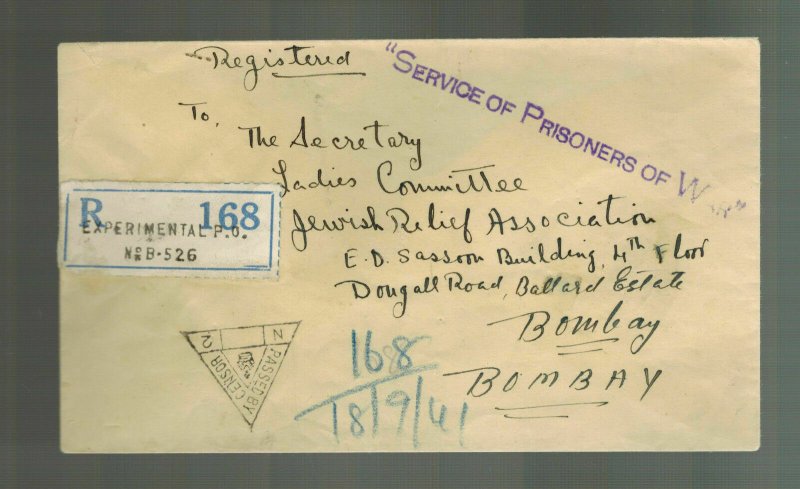 Registered
"SERVICE OF PRISONERS OF W
To,
The Secretary
Ladies Committee
Jewish Relief Association
E.D. Sassoon Building, 4th Floor
Dougall Road, Ballard Estate
Bombay
BOMBAY
R 168
EXPERIMENTAL P.O.
No B-526
PASSED BY CENSOR
N
168
18/9/41